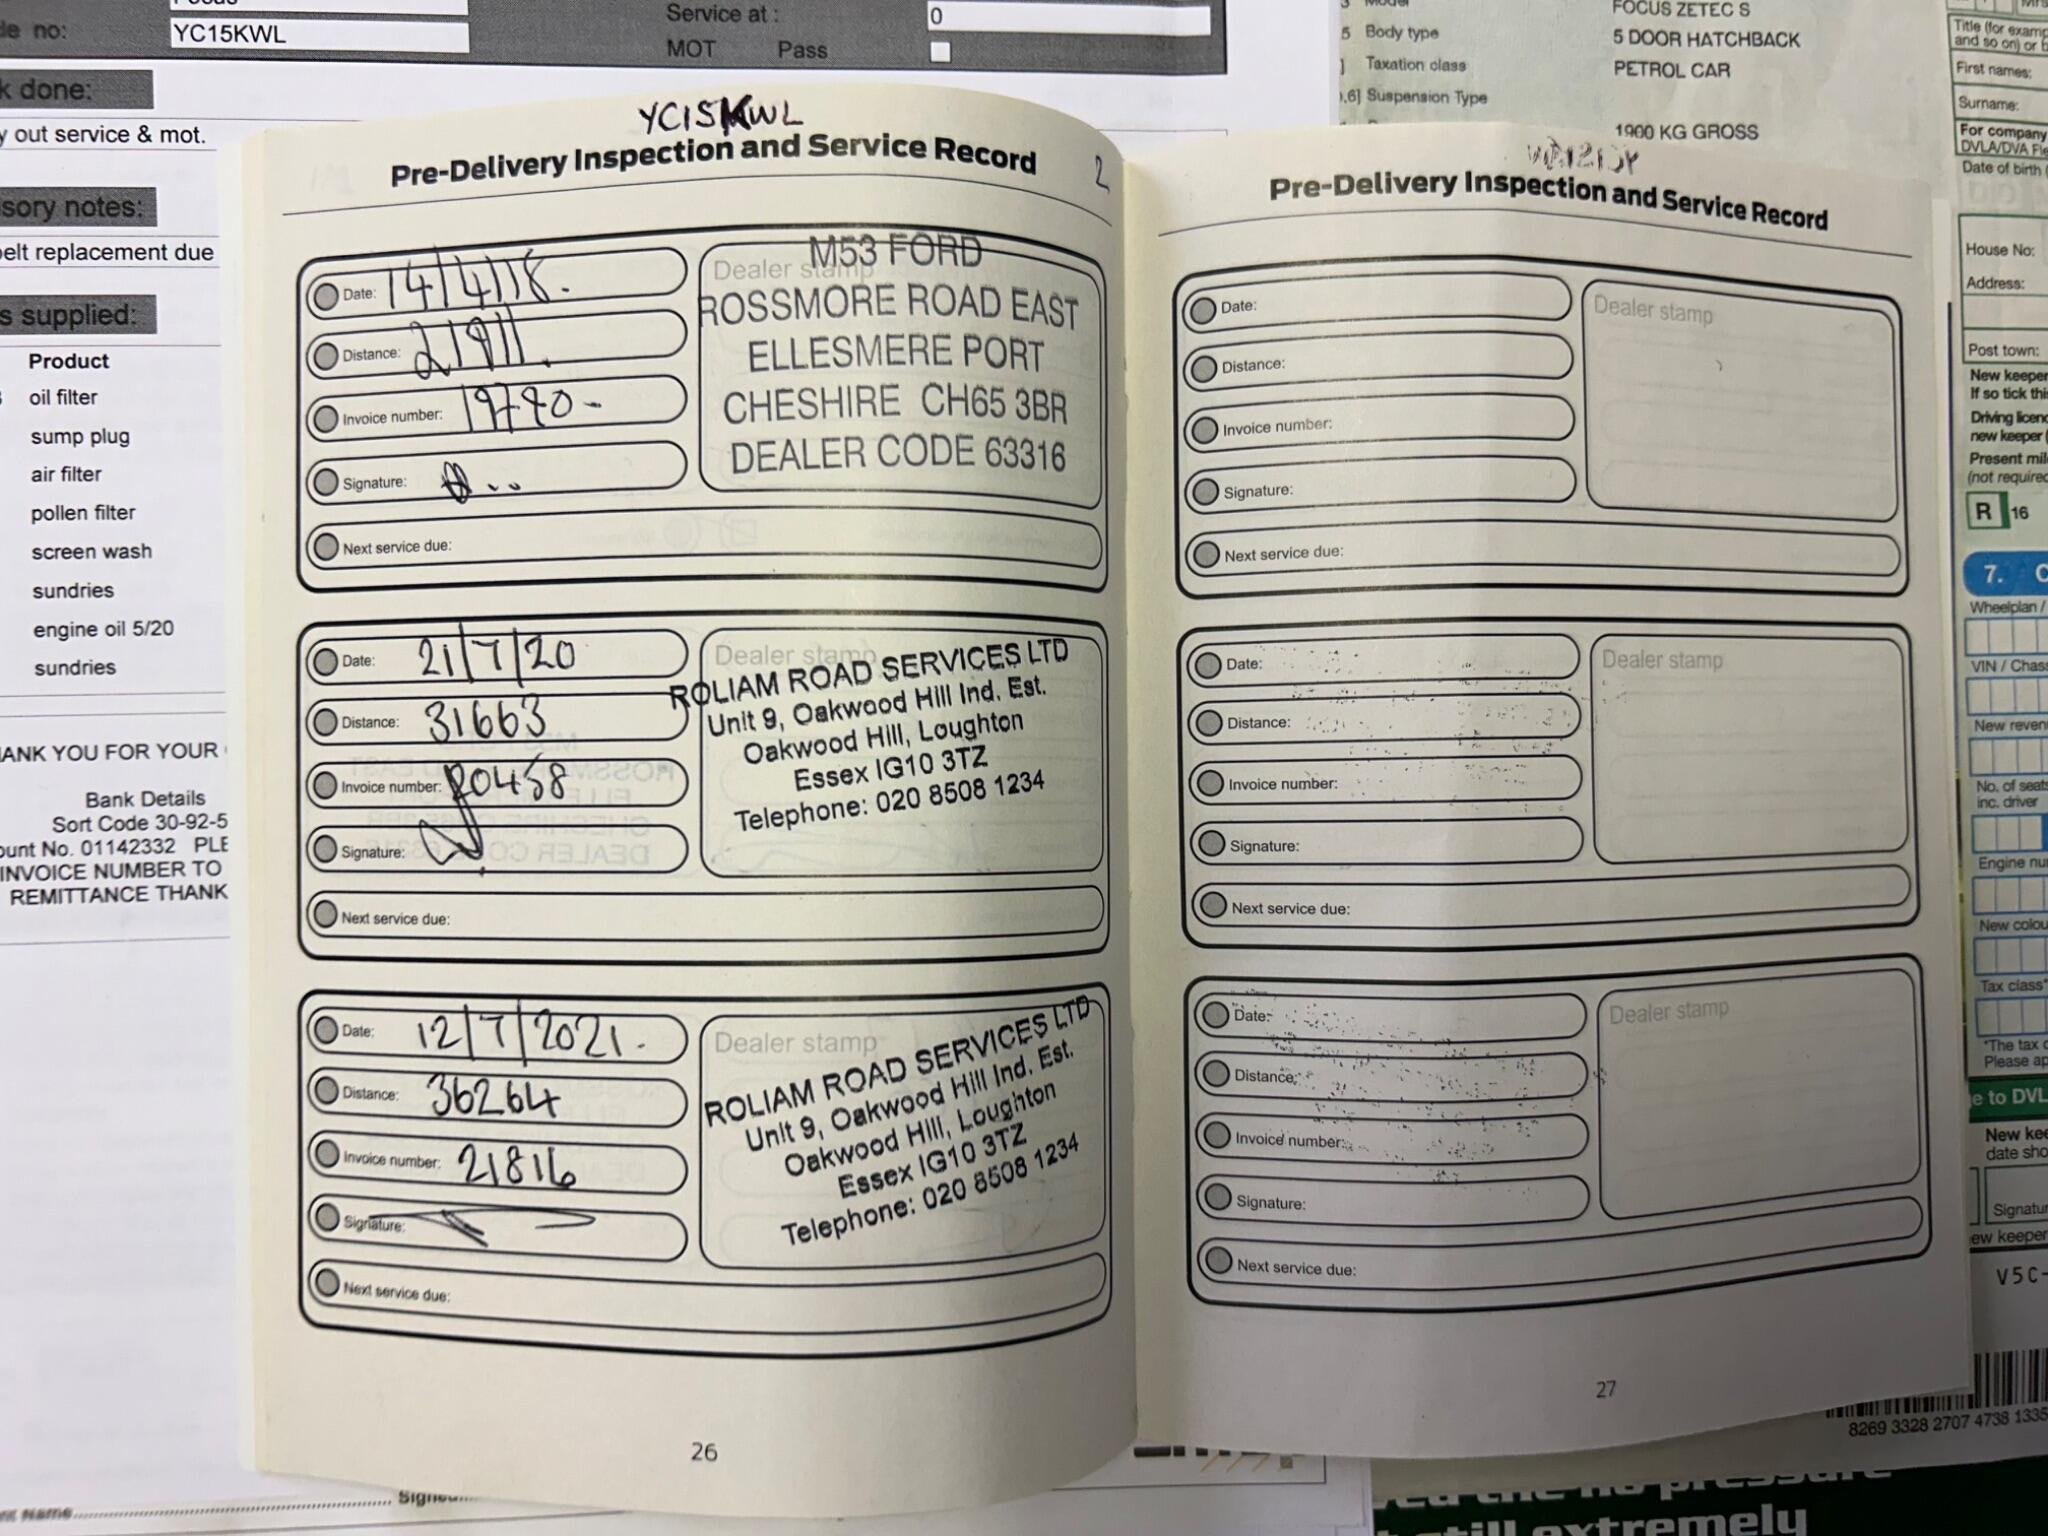 Service at :
0
no:
YC15KWL
MOT Pass
done:
out service & mot.
notes:
replacement due
supplied:
Product
oil filter
sump plug
air filter
pollen filter
screen wash
sundries
engine oil 5/20
sundries
YOU FOR YOUR
Bank Details
Sort Code 30-92-5
No. 01142332
INVOICE NUMBER TO
REMITTANCE THANK
YC15KWL
Pre-Delivery Inspection and Service Record
2
Date: 14/4/18.
Distance: 21911.
Invoice number: 19790-
Signature:
Next service due:
Dealer stamp
M53 FORD
ROSSMORE ROAD EAST
ELLESMERE PORT
CHESHIRE CH65 3BR
DEALER CODE 63316
Date: 21/7/20
Distance: 31663
Invoice number: 20458
Signature:
Next service due:
Dealer stamp
ROLIAM ROAD SERVICES LTD
Unit 9, Oakwood Hill Ind. Est.
Oakwood Hill, Loughton
Essex IG10 3TZ
Telephone: 020 8508 1234
Date: 12/7/2021.
Distance: 36264
Invoice number: 21816
Signature:
Next service due:
Dealer stamp
ROLIAM ROAD SERVICES LTD
Unit 9, Oakwood Hill Ind. Est.
Oakwood Hill, Loughton
Essex IG10 3TZ
Telephone: 020 8508 1234
26
Pre-Delivery Inspection and Service Record
Date:
Distance:
Invoice number:
Signature:
Next service due:
Dealer stamp
Date:
Distance:
Invoice number:
Signature:
Next service due:
Dealer stamp
Date:
Distance:
Invoice number:
Signature:
Next service due:
Dealer stamp
27
Model FOCUS ZETEC S
5 Body type 5 DOOR HATCHBACK
Taxation class PETROL CAR
Suspension Type
1900 KG GROSS
Title (for
and so on) or
First names:
Surname:
For company
DVLA/DVA
Date of birth
House No:
Address:
Post town:
New keeper
If so tick
Driving
new keeper
Present
(not
R 16
7.
Wheelplan /
VIN /
New
No. of
inc. driver
Engine
New
Tax class
*The tax
Please
to DVL
New
date
V5C-
8269 3328 2707 4738 1335
still extremely